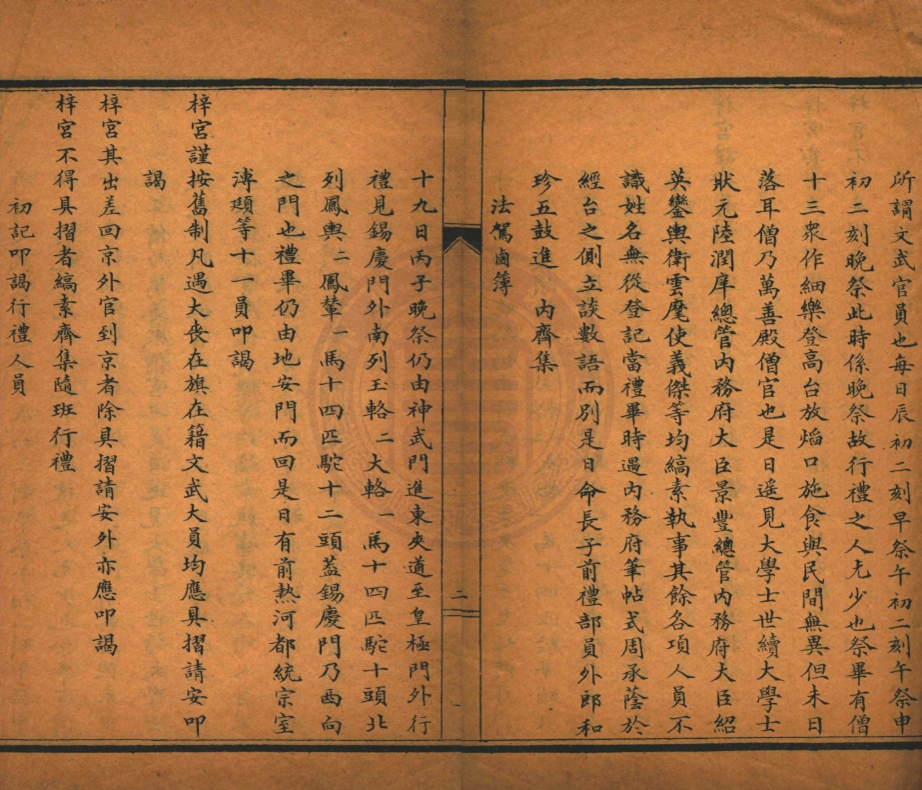 所謂文武官員也每日辰初二刻早祭午初二刻午祭申
初二刻晚祭此時係晚祭故行禮之人尢少也祭畢有僧
十三衆作細樂登高台放燄口施食與民間無異但未日
落耳僧乃萬善殿僧官也是日遥見大學士世續大學士
狀元陸潤庠總管内務府大臣景豐總管内務府大臣紹
英鑾輿衛雲麾使義傑等均縞素執事其餘各項人員不
識姓名無從登記當禮畢時遇内務府筆帖式周承蔭於
經台之側立談數語而别是日命長子前禮部員外郎和
珍五鼓進　内齊集
法駕鹵簿
二
十九日丙子晚祭仍由神武門進東夾道至皇極門外行
禮見錫慶門外南列玉輅二大輅一馬十四匹駝十頭北
列鳳輿二鳳輦一馬十四匹駝十二頭蓋錫慶門乃西向
之門也禮畢仍由地安門而回是日有前熱河都統宗室
溥頲等十一員叩謁
梓宮謹按舊制凡遇大喪在旗在籍文武大員均應具摺請安叩
謁
梓宮其出差回京外官到京者除具摺請安外亦應叩謁
梓宮不得具摺者縞素齊集隨班行禮
初記叩謁行禮人員